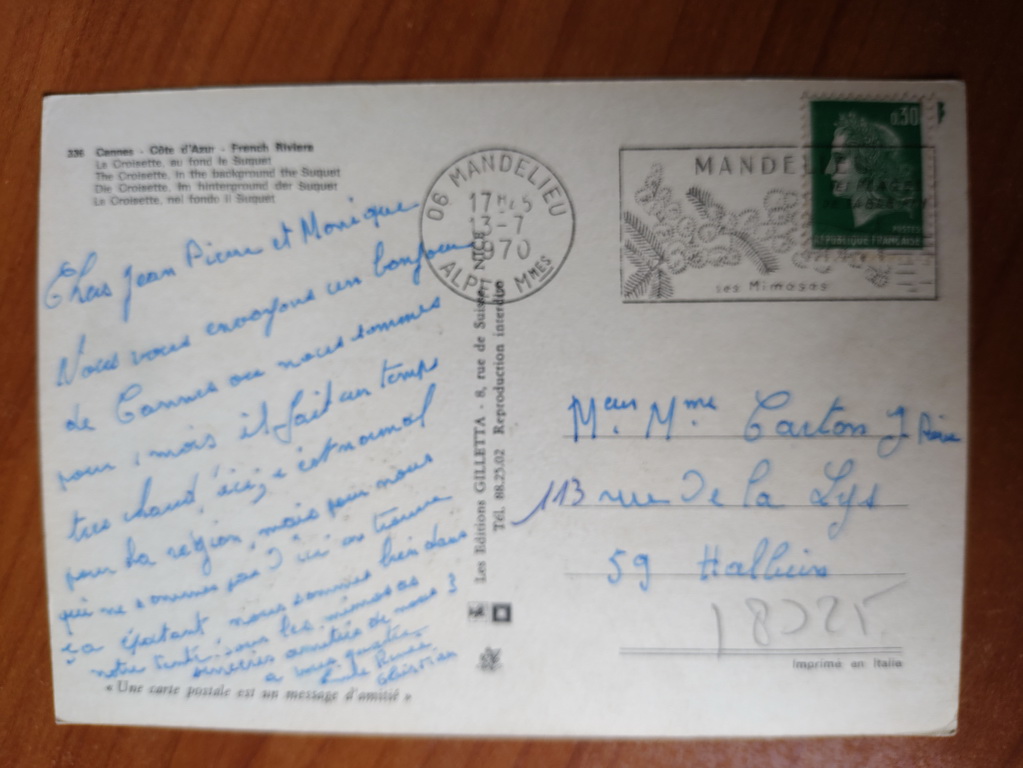 336 Cannes - Côte d'Azur - French Riviera
La Croisette, au fond le Suquet
The Croisette, in the background the Suquet
Die Croisette, im hinterground der Suquet
La Croisette, nel fondo il Suquet
Chers Jean Pierre et Monique
Nous vous envoyons un bonjour
de Cannes ou nous sommes
pour 1 mois il fait un temps
tres chaud ici, c'est normal
pour la région, mais pour nous
qui ne sommes pas d'ici on trouve
ça épatant, nous sommes bien dans
notre tente, sous les mimosas
sincères amitiés de
a vous quatre, nous 3
Renée
Christian
« Une carte postale est un message d'amitié »
Les Editions GILLETTA - 8, rue de Suisse, NICE
Tél. 88.25.02 Reproduction interdite
06 MANDELIEU
17H45
13-7
1970
ALPES MMES
MANDELIEU
ses Mimosas
0,30
POSTES
REPUBLIQUE FRANÇAISE
Meur Mme Carton J. Pierre
113 rue de la Lys
59 Halluin
18025
Imprimé en Italie